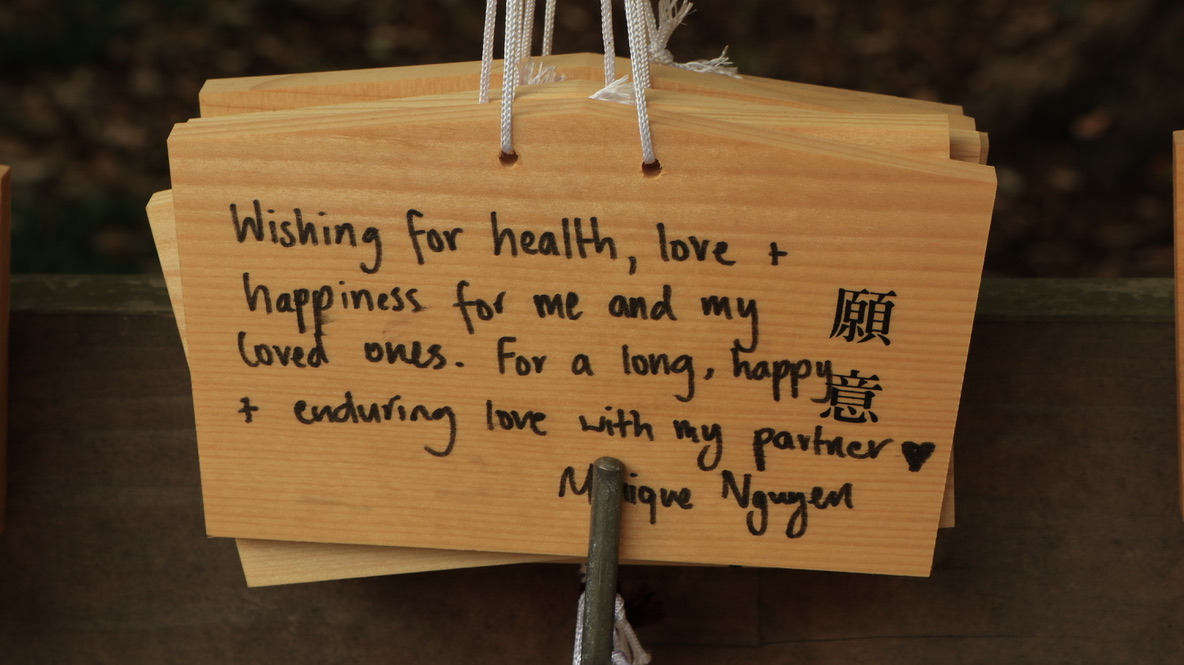 Wishing for health, love +
happiness for me and my
loved ones. For a long, happy
+ enduring love with my partner ♥
Nguyen
願意